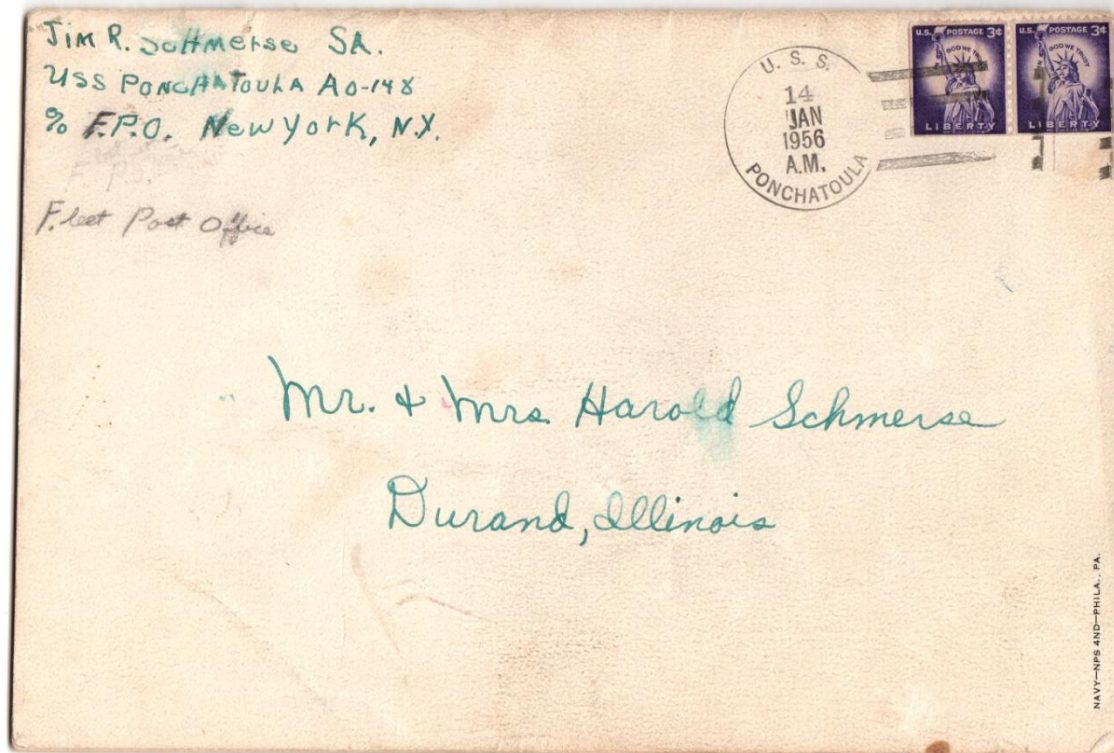 Jim R. Schmerse SA.
USS PONCHATOULA AO-148
% F.P.O. New York, N.Y.
F. P.O.
Fleet Post Office
U. S. S.
14
JAN
1956
A.M.
PONCHATOULA
U.S. POSTAGE 3¢
IN GOD WE TRUST
LIBERTY
U.S. POSTAGE 3¢
IN GOD WE TRUST
LIBERTY
Mr. & Mrs. Harold Schmerse
Durand, Illinois
NAVY—NPS 4ND—PHILA., PA.